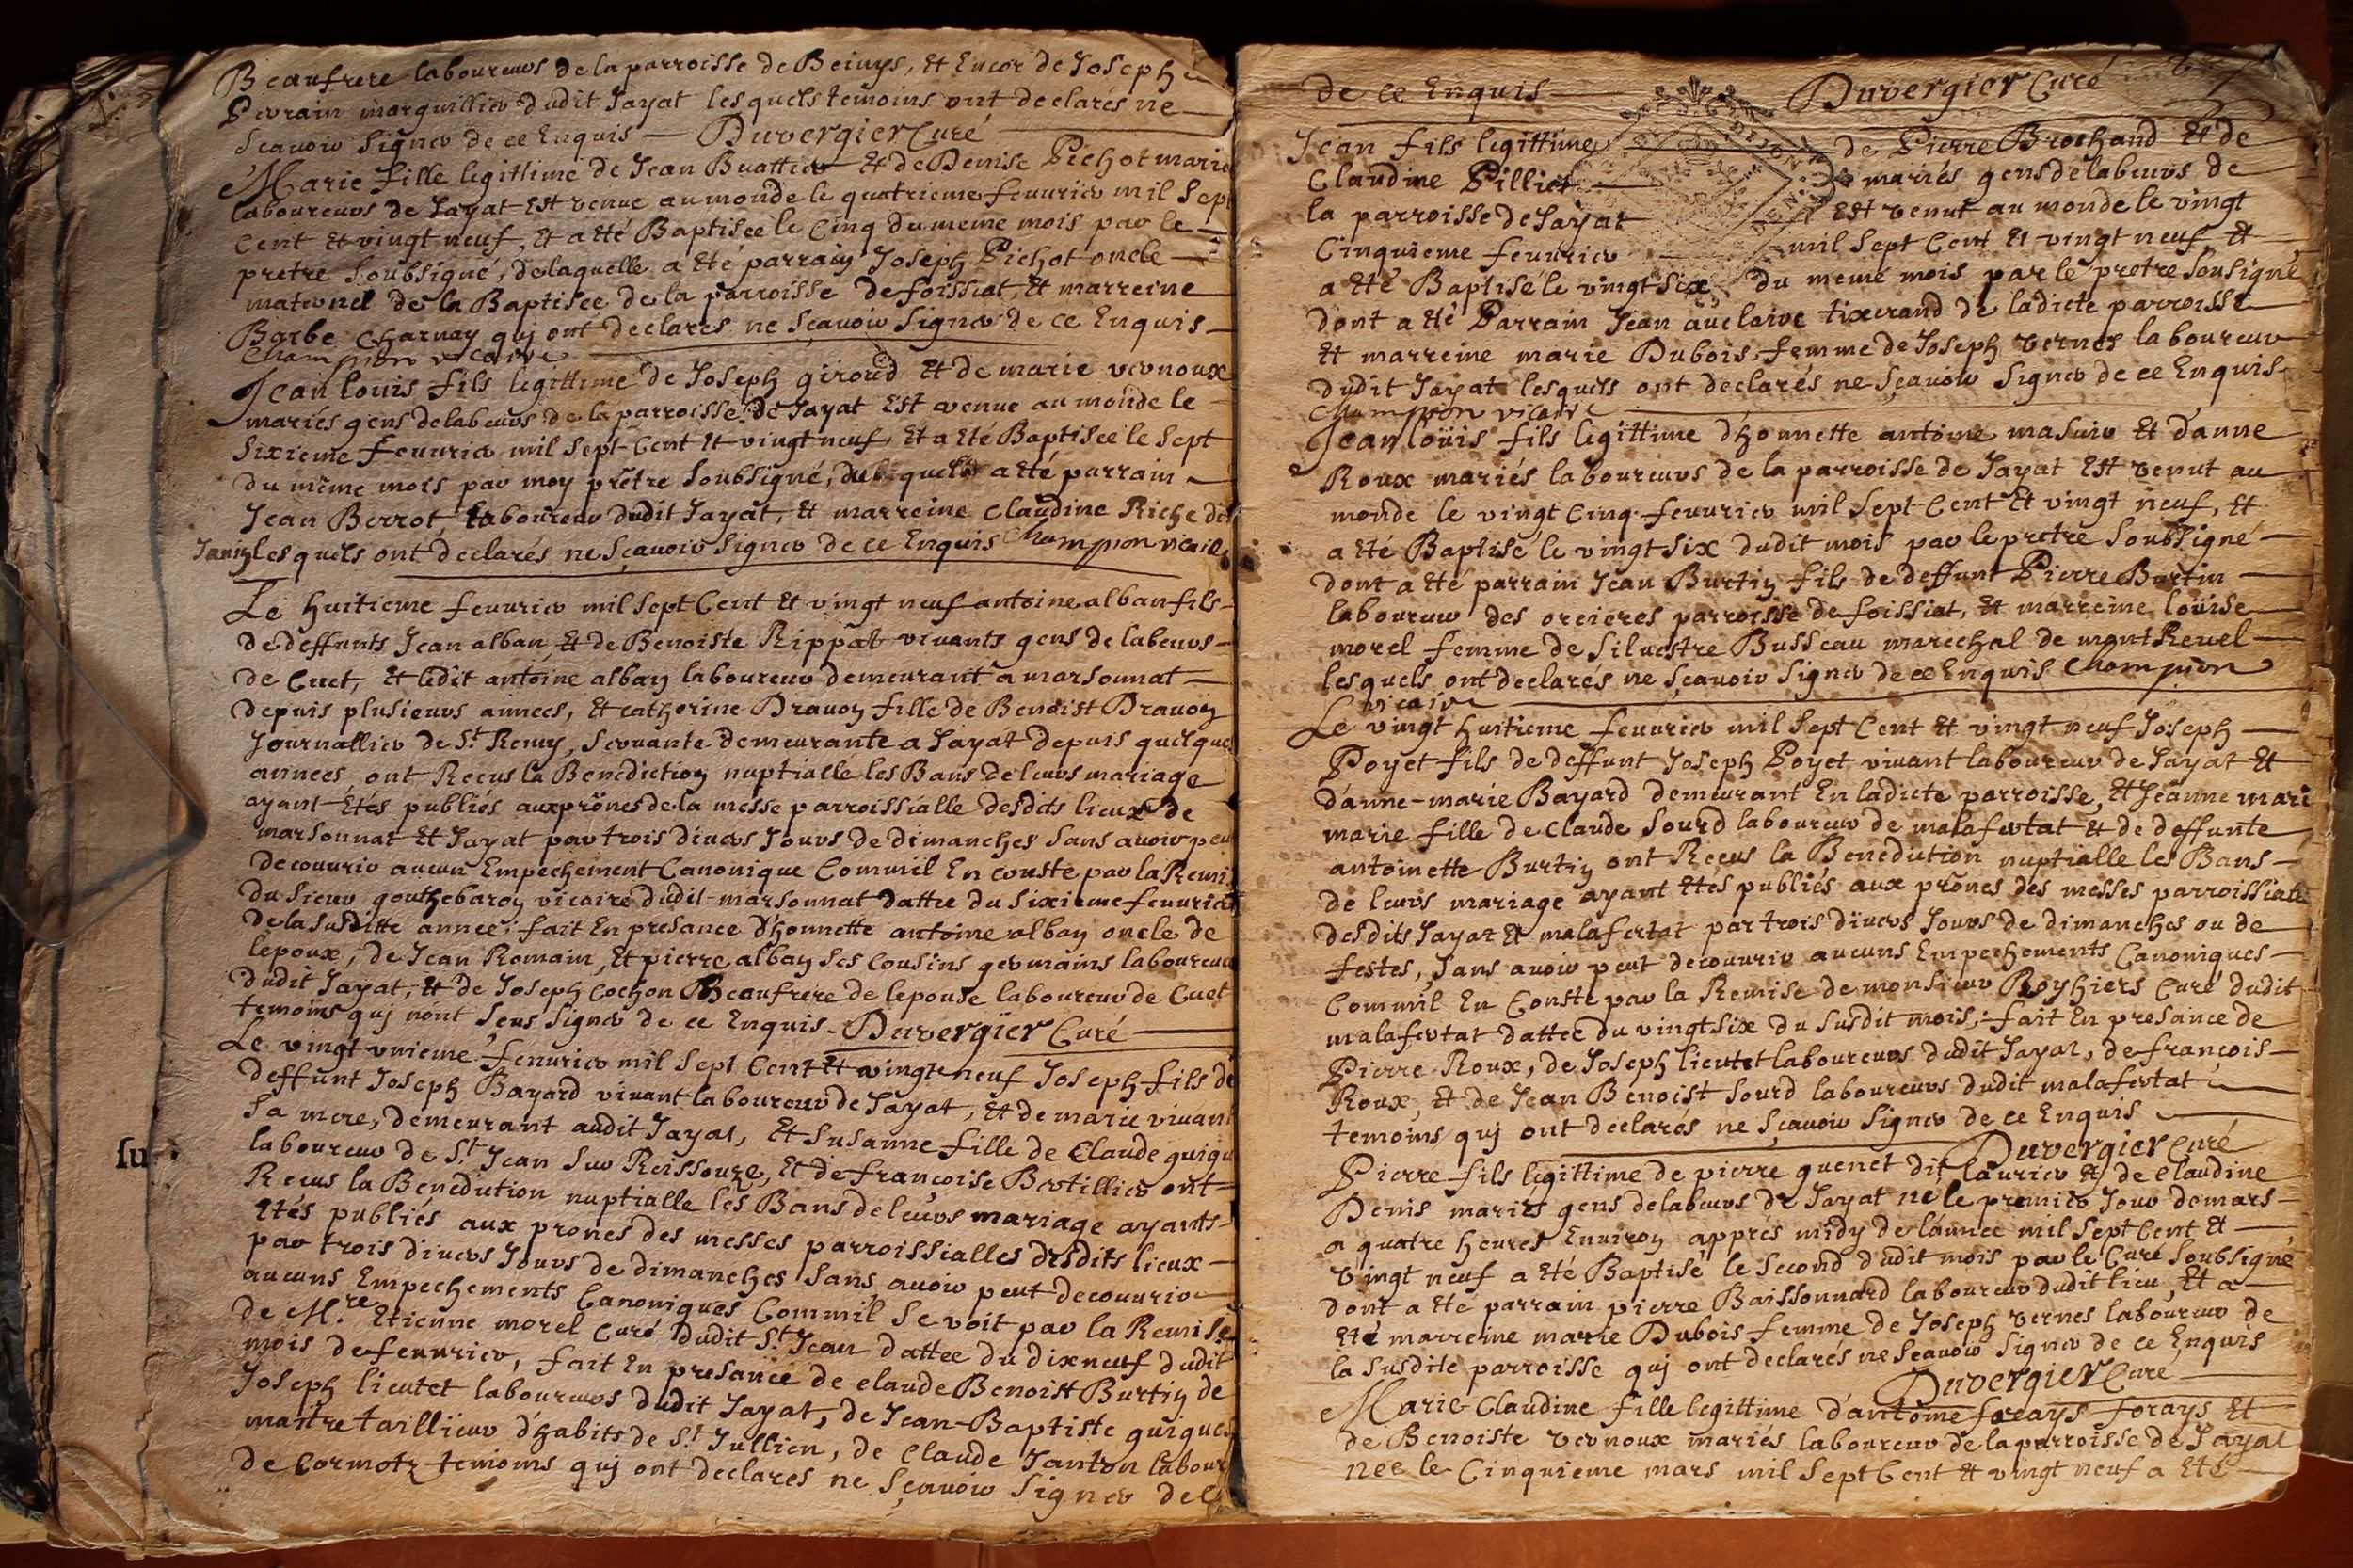 Beaufrere laboureurs de la parroisse de Beinys, et Encor de Joseph
Perrain marguillier dudit Jayat lesquels temoins ont declarés ne
Scavoir Signer de ce Enquis — Duvergier Curé
Marie fille legittime de Jean Buattier et de Denise Pichot mariés
laboureurs de Jayat Est venue au monde le quatrieme feuurier mil Sept
Cent et vingt neuf, et a eté Baptisée le Cinq du meme mois par le
pretre Soubsigné, de laquelle a eté parrain Joseph Pichot oncle
maternel de la Baptisée de la parroisse de foissiat, et marreine
Barbe Charnay quj ont declarés ne Sçauoir Signer de ce Enquis
Champion vicaire
Jean louis fils legittime de Joseph giroud et de marie vernoux
mariés gens de labeurs de la parroisse de Jayat Est venue au monde le
Sixieme feuurier mil Sept Cent et vingt neuf, et a eté Baptisée le Sept
du même mois par moy prêtre Soubsigné, a eté parrain
Jean Berrot, laboureur dudit Jayat, et marreine Claudine Riche dit
lesquels ont declarés ne Sçauoir Signer de ce Enquis Champion vicaire
Le huitieme feuurier mil Sept Cent et vingt neuf antoine alban fils
de deffunts Jean alban et de Benoiste Rippat vivants gens de labeurs
de Cuet, et ledit antoine alban laboureur demeurant a marsonnat
depuis plusieurs annees, et catherine Dravon fille de Benoist Dravon
Journallier de St. Remy, Servante demeurante a Jayat depuis quelque
annees, ont Recus la Benediction nuptialle les Bans de leurs mariage
ayant Etés publiés aux prônes de la messe parroissialle desdits lieux de
marsonnat et Jayat par trois diuers Jours de dimanches Sans auoir peu
decouurir aucun Empechement Canonique Commil En conste par la Remise
du Sieur gouthebaron vicaire dudit marsonnat dattée du Sixieme feuurier
de la Susditte année; fait En presance d'honnette antoine alban oncle de
lepoux, de Jean Romain, et pierre alban Ses Cousins germains laboureurs
dudit Jayat, et de Joseph Cochon Beaufrere de lepouse laboureur de Cuet
temoins quj nont Seus Signer de ce Enquis — Duvergier Curé
Le vingt vnieme feuurier mil Sept Cent et vingt neuf Joseph fils de
deffunt Joseph Bayard viuant laboureur de Jayat, et de marie viuant
Sa mere, demeurant audit Jayat, et Susanne fille de Claude guigue
laboureur de St. Jean Sur Reissouze, et de francoise Bertillier ont
Recus la Benediction nuptialle les Bans de leurs mariage ayants
Etés publiés aux prones des messes parroissialles desdits lieux
par trois diuers Jours de dimanches Sans auoir peut decouurir
aucuns Empechements Canoniques Commil Se voit par la Remise
de Mre. Etienne morel Curé dudit St. Jean dattee du dixneuf dudit
mois de feuurier, fait En presance de claude Benoist Burtin de
Joseph lieutet laboureurs dudit Jayat, de Jean-Baptiste guigues
maitre taillieur d'habits de St. Jullien, de Claude Janton labour
de Cormotz temoins quj ont declares ne Sçauoir Signer de
su
de ce Enquis — Duvergier Curé
Jean fils legittime de Pierre Brochand et de
Claudine Pillier mariés gens de labeurs de
la parroisse de Jayat Est venut au monde le vingt
Cinquieme feuurier mil Sept Cent et vingt neuf, et
a eté Baptisé le vingt Six du meme mois par le pretre Sousigné
dont a eté Parrain Jean auclaire tixerand de ladicte parroisse
et marreine marie Dubois femme de Joseph vernes laboureur
dudit Jayat lesquels ont declarés ne Sçauoir Signer de ce Enquis
Champion vicaire
Jean loüis fils legittime d'honnette antoine masuir et d'anne
Roux mariés laboureurs de la parroisse de Jayat Est venut au
monde le vingt Cinq feuurier mil Sept Cent et vingt neuf, et
a eté Baptisé le vingt Six dudit mois par le pretre Soubsigné
dont a eté parrain Jean Burtin fils de deffunt Pierre Burtin
laboureur des orcieres parroisse de foissiat, et marreine loüise
morel femme de Siluestre Busseau marechal de montReuel
lesquels ont declarés ne Sçauoir Signer de ce Enquis Champion
vicaire
Le vingt huitieme feuurier mil Sept Cent et vingt neuf Joseph
Poyet fils de deffunt Joseph Poyet viuant laboureur de Jayat et
d'anne-marie Bayard demeurant En ladicte parroisse, et Jeanne mari
marie fille de Claude Sourd laboureur de malafertat et de deffunte
antoinette Burtin ont Recus la Benediction nuptialle les Bans
de leurs mariage ayant Etés publiés aux prônes des messes parroissialle
desdits Jayat et malafertat par trois diuers Jours de dimanches ou de
festes, Sans auoir peut decouurir aucuns Empechements Canoniques
Commil En Conste par la Remise de monsieur Royhiers Curé dudit
malafertat dattee du vingt six du Susdit mois; fait En presance de
Pierre Roux, de Joseph lieutet laboureurs dudit Jayat, de francois
Roux, et de Jean Benoist Sourd laboureurs dudit malafertat
temoins quj ont declarés ne Sçauoir Signer de ce Enquis
Duvergier Curé
Pierre fils legittime de pierre guenet dit laurier et de Claudine
Denis mariés gens de labeurs de Jayat né le premier Jour de mars
a quatre heures Enuiron appres midy de lannee mil Sept Cent et
vingt neuf a eté Baptisé le Second dudit mois par le Curé Soubsigné
dont a eté parrain pierre Baissonnard laboureur dudit lieu, et a
eté marreine marie Dubois femme de Joseph vernes laboureur de
la Susdite parroisse quj ont declarés ne Scauoir Signer de ce Enquis
Duvergier Curé
Marie-Claudine fille legittime d'antoine forays forays et
de Benoiste vernoux mariés laboureur de la parroisse de Jayat
née le Cinquieme mars mil Sept Cent et vingt neuf a eté